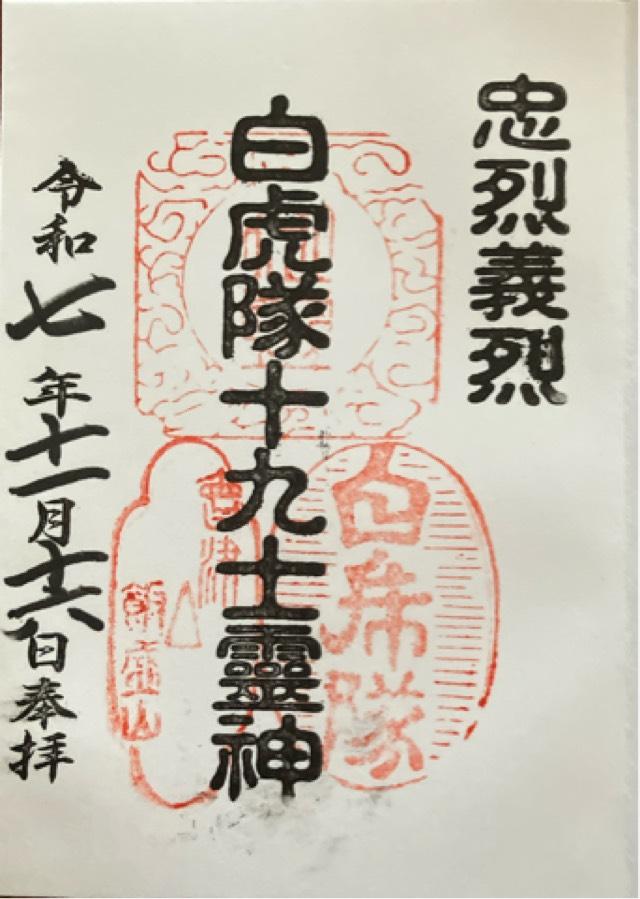 忠烈義烈
白虎隊十九士靈神
白虎隊
會津
飯盛山
令和七年十一月十六日奉拝